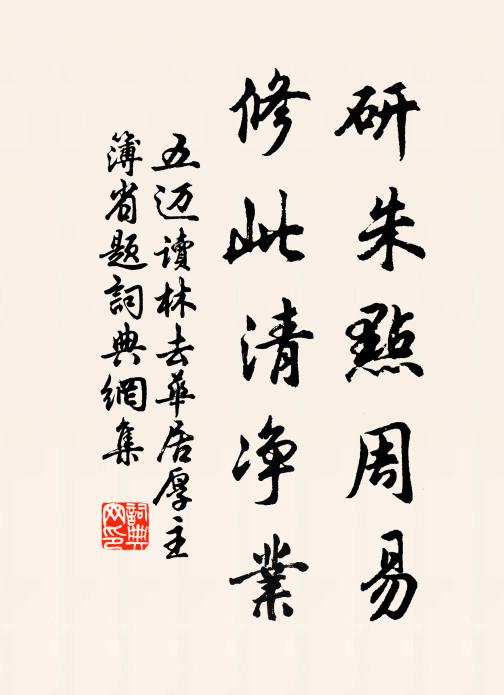 研朱點周易
修此清净業
五迈讀林去華居厚主
簿省題詞典網集
詞典
网印